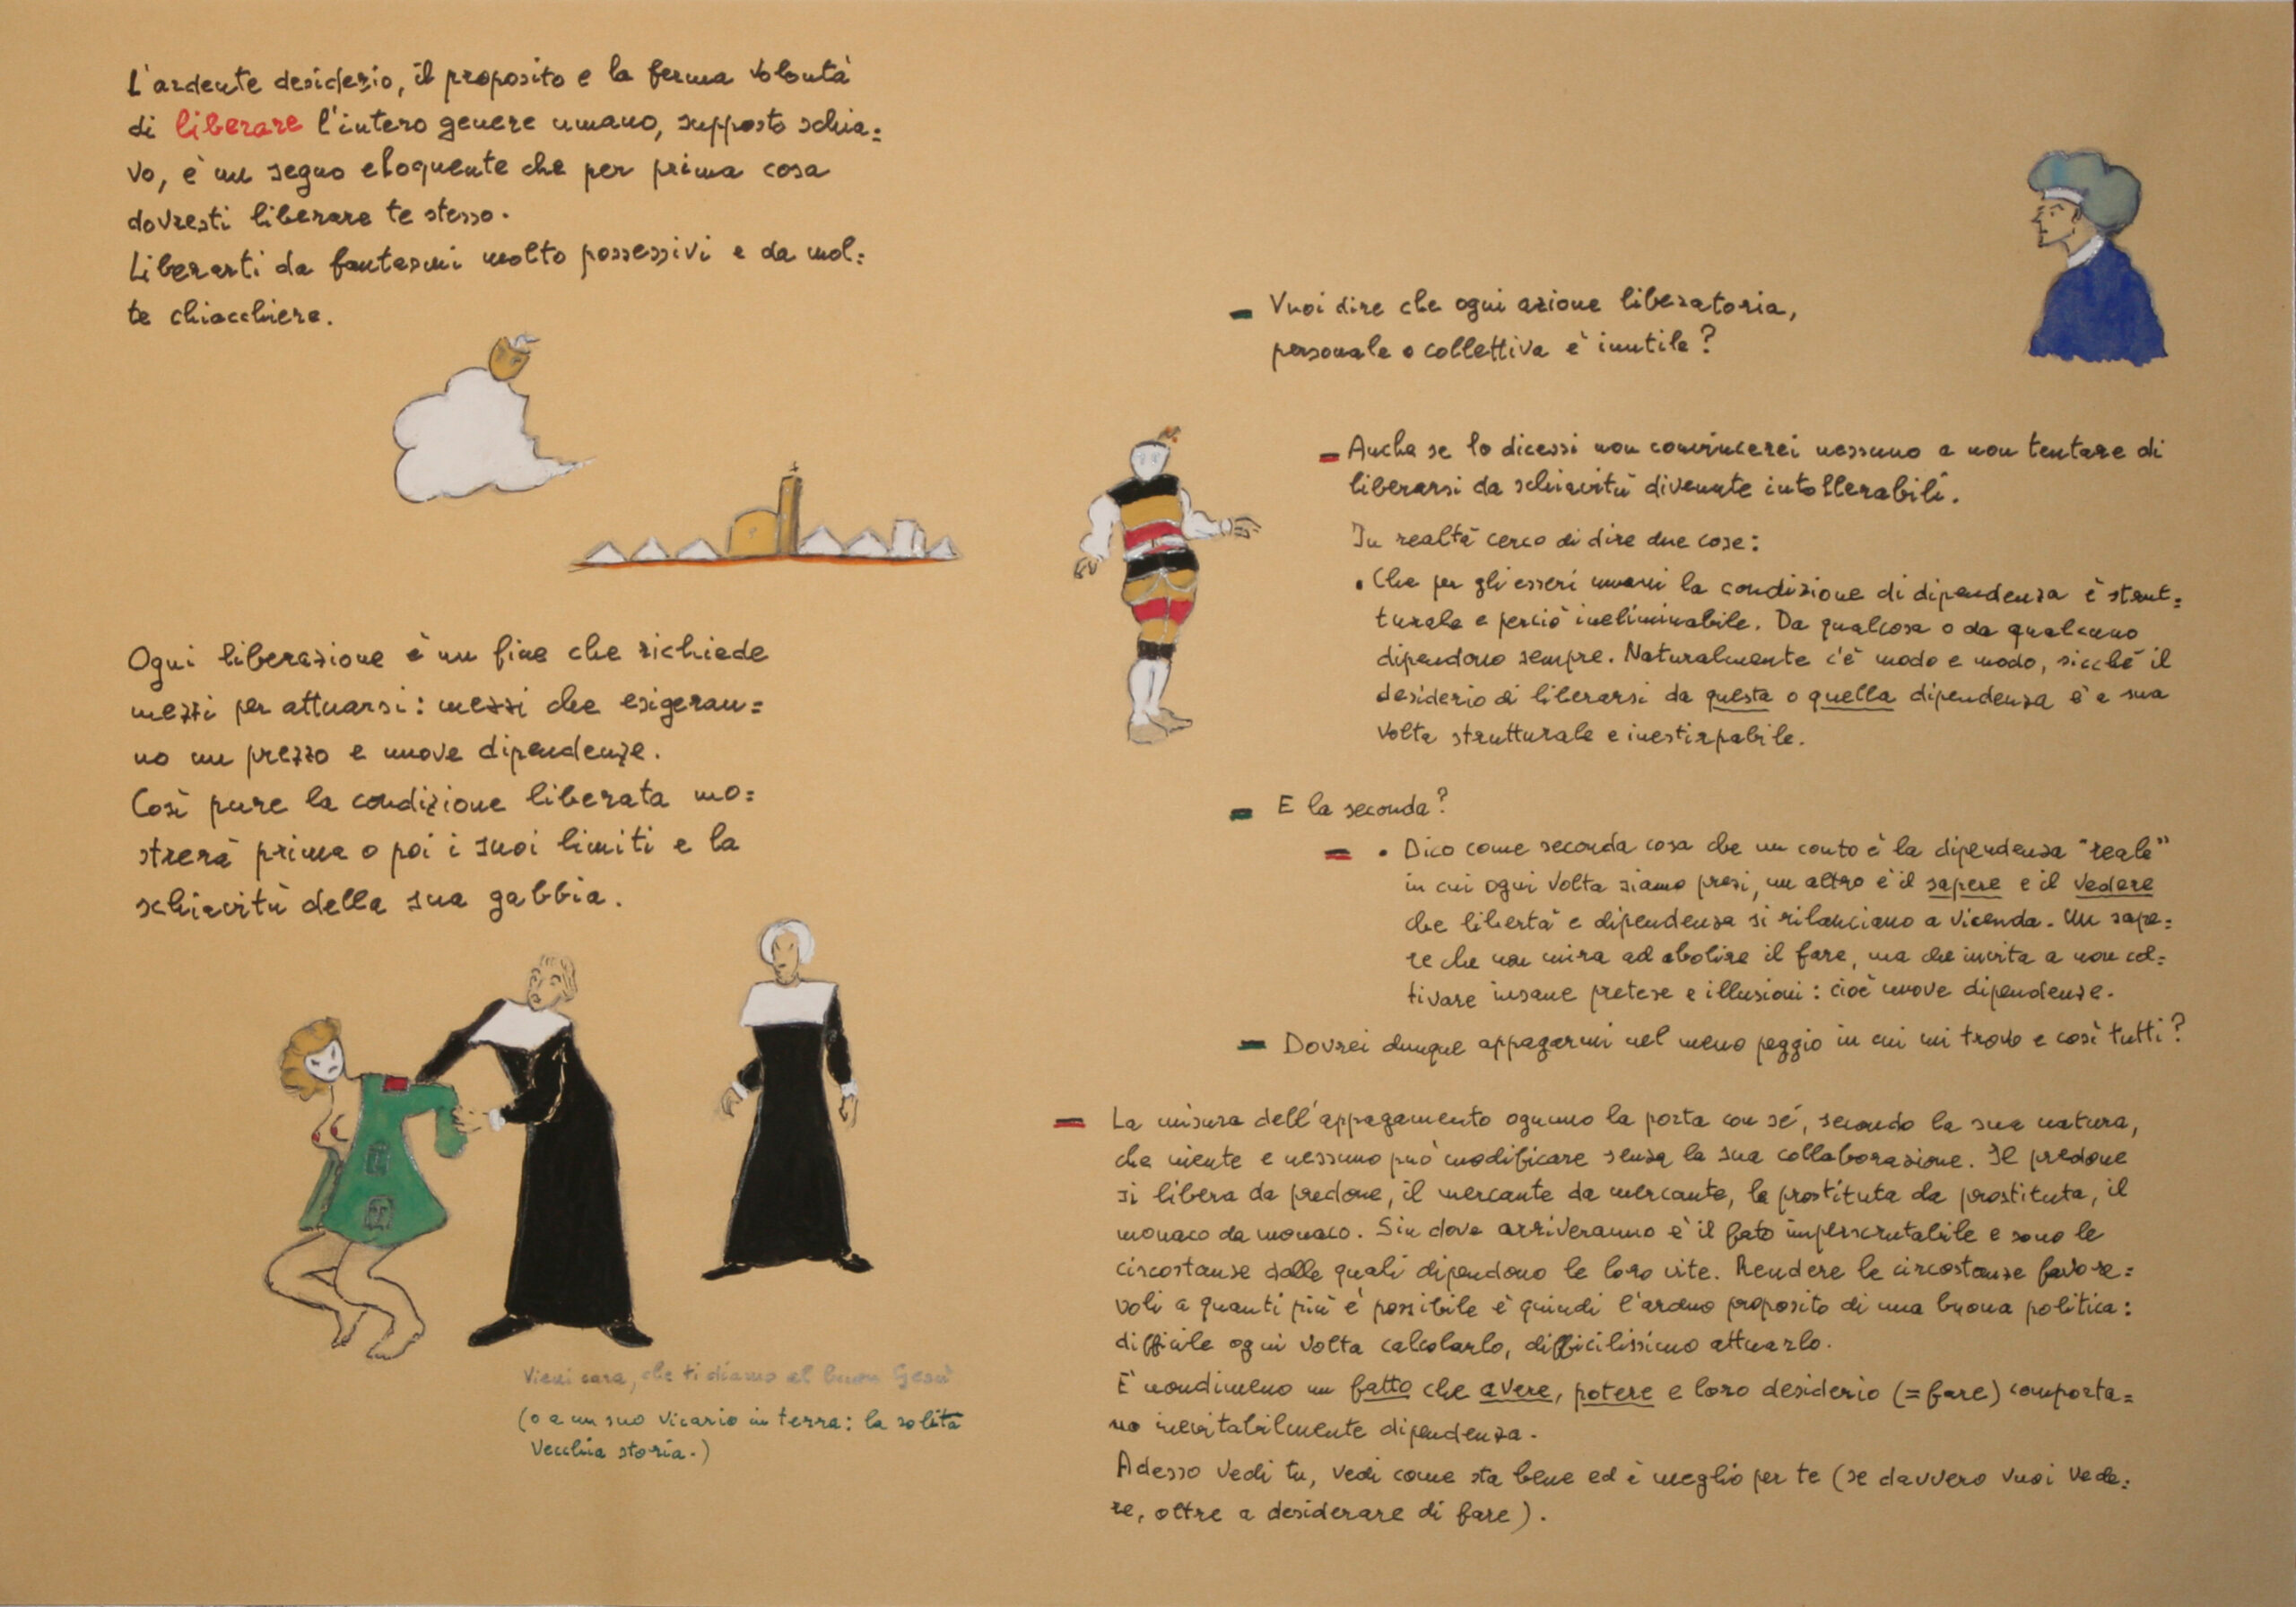 L'ardente desiderio, il proposito e la ferma volontà
di liberare l'intero genere umano, supposto schia=
vo, è un segno eloquente che per prima cosa
dovresti liberare te stesso.
Liberarti da fantasmi molto possessivi e da mol=
te chiacchiere.
Ogni liberazione è un fine che richiede
mezzi per attuarsi: mezzi che esigeran=
no un prezzo e nuove dipendenze.
Così pure la condizione liberata mo=
strerà prima o poi i suoi limiti e la
schiavitù della sua gabbia.
Vieni cara, che ti diamo al buon Gesù
(o a un suo vicario in terra: la solita
vecchia storia.)
- Vuoi dire che ogni azione liberatoria,
personale o collettiva è inutile?
- Anche se lo dicessi non convincerei nessuno a non tentare di
liberarsi da schiavitù divenute intollerabili.
In realtà cerco di dire due cose:
• Che per gli esseri umani la condizione di dipendenza è strut=
turale e perciò ineliminabile. Da qualcosa o da qualcuno
dipendono sempre. Naturalmente c'è modo e modo, sicché il
desiderio di liberarsi da questa o quella dipendenza è a sua
volta strutturale e inestirpabile.
- E la seconda?
- • Dico come seconda cosa che un conto è la dipendenza "reale"
in cui ogni volta siamo presi, un altro è il sapere e il vedere
che libertà e dipendenza si rilanciano a vicenda. Un sape=
re che non mira ad abolire il fare, ma che invita a non col=
tivare insane pretese e illusioni: cioè nuove dipendenze.
- Dovrei dunque appagarmi nel meno peggio in cui mi trovo e così tutti?
- La misura dell'appagamento ognuno la porta con sé, secondo la sua natura,
che niente e nessuno può modificare senza la sua collaborazione. Il predone
si libera da predone, il mercante da mercante, la prostituta da prostituta, il
monaco da monaco. Sin dove arriveranno è il fato imperscrutabile e sono le
circostanze dalle quali dipendono le loro vite. Rendere le circostanze favore=
voli a quanti più è possibile è quindi l'arduo proposito di una buona politica:
difficile ogni volta calcolarlo, difficilissimo attuarlo.
E' nondimeno un fatto che avere, potere e loro desiderio (= fare) comporta=
no inevitabilmente dipendenza.
Adesso vedi tu, vedi come sta bene ed è meglio per te (se davvero vuoi vede=
re, oltre a desiderare di fare).